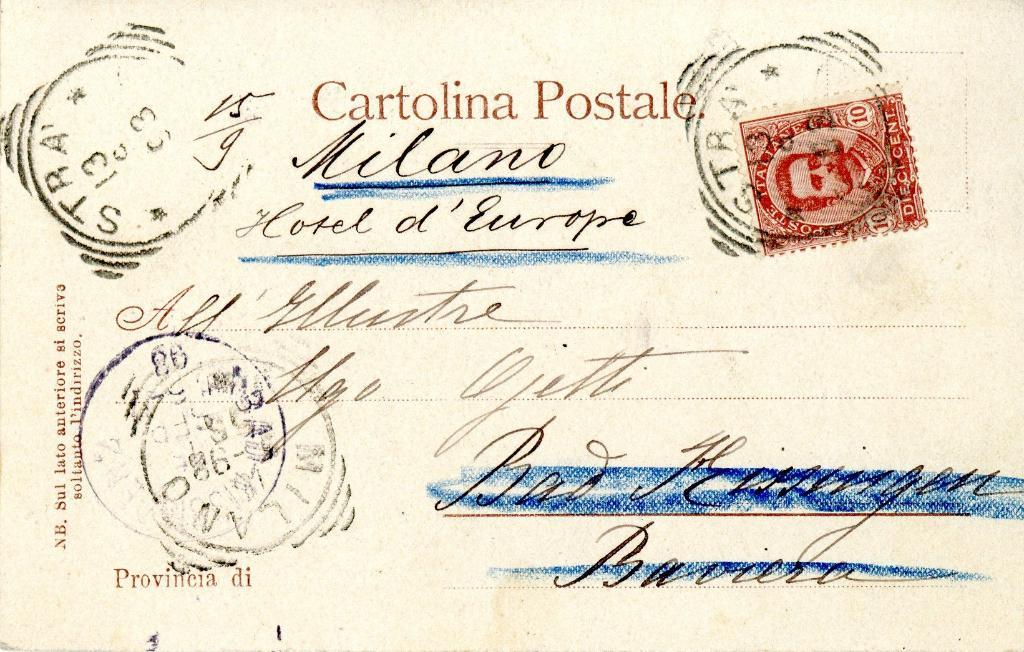 Cartolina Postale.
15/9
Milano
Hotel d'Europe
All'Illustre
Ugo Ojetti
Bad Kissingen
Baviera
Provincia di
NB. Sul lato anteriore si scrive
soltanto l'indirizzo.
STRA'
13
STRA'
13
10
10
DIECI CENT.
POSTE
MILANO
98